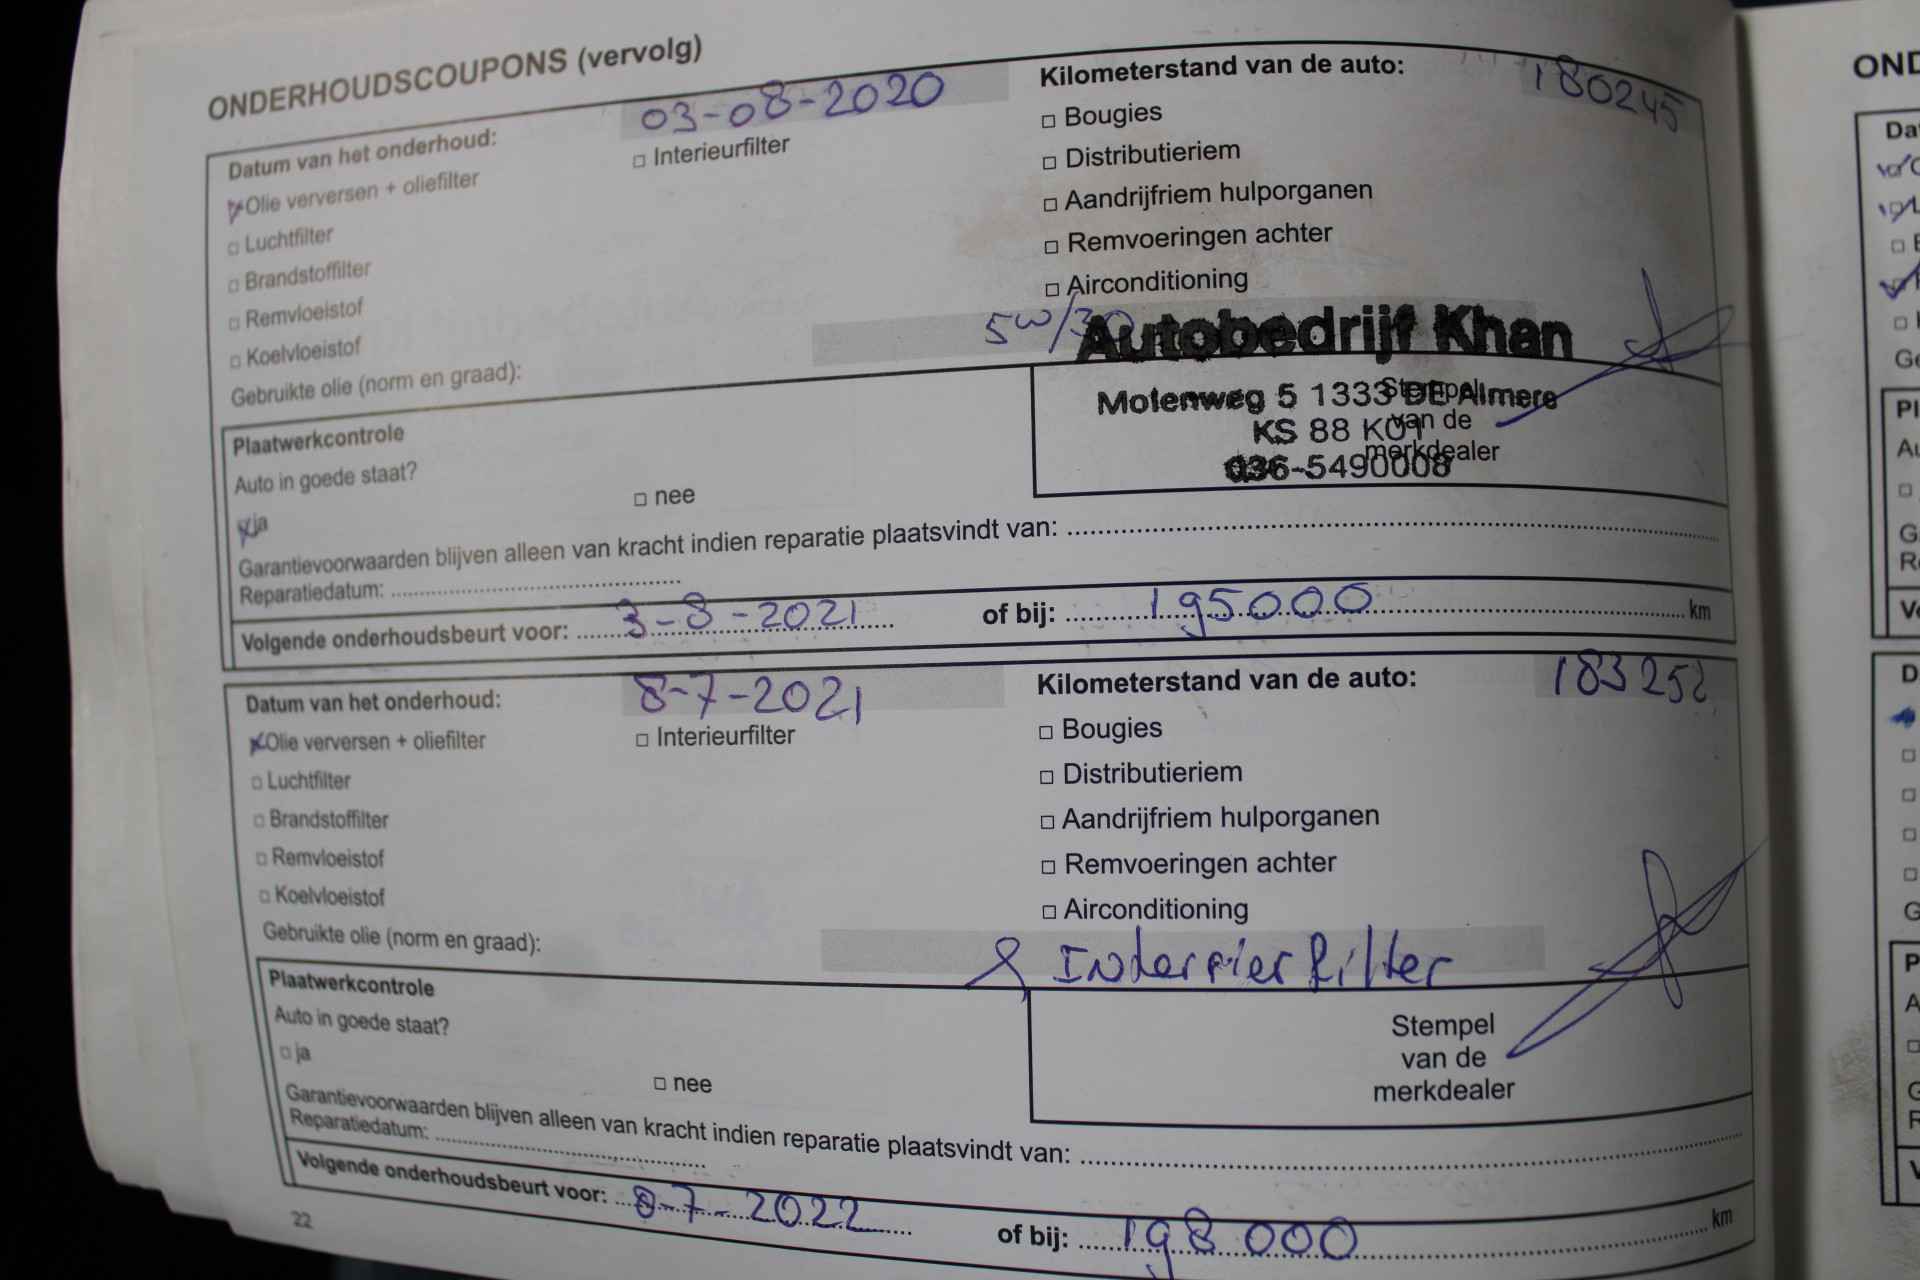 ONDERHOUDSCOUPONS (vervolg)
Datum van het onderhoud: 03-08-2020
Kilometerstand van de auto: 180245
Olie verversen + oliefilter
□ Interieurfilter
□ Bougies
□ Luchtfilter
□ Distributieriem
□ Brandstoffilter
□ Aandrijfriem hulporganen
□ Remvloeistof
□ Remvoeringen achter
□ Koelvloeistof
□ Airconditioning
Gebruikte olie (norm en graad): 5w/30
Autobedrijf Khan
Molenweg 5 1333 DE Almere
KS 88 K01
036-5490008
Stempel
van de
merkdealer
Plaatwerkcontrole
Auto in goede staat?
ja
□ nee
Garantievoorwaarden blijven alleen van kracht indien reparatie plaatsvindt van:
Reparatiedatum:
Volgende onderhoudsbeurt voor: 3-8-2021 of bij: 195000 km
Datum van het onderhoud: 8-7-2021
Kilometerstand van de auto: 183252
Olie verversen + oliefilter
□ Interieurfilter
□ Bougies
□ Luchtfilter
□ Distributieriem
□ Brandstoffilter
□ Aandrijfriem hulporganen
□ Remvloeistof
□ Remvoeringen achter
□ Koelvloeistof
□ Airconditioning
Gebruikte olie (norm en graad):
& Inderrierfilter
Plaatwerkcontrole
Auto in goede staat?
□ ja
□ nee
Stempel
van de
merkdealer
Garantievoorwaarden blijven alleen van kracht indien reparatie plaatsvindt van:
Reparatiedatum:
Volgende onderhoudsbeurt voor: 8-7-2022 of bij: 198000 km
22